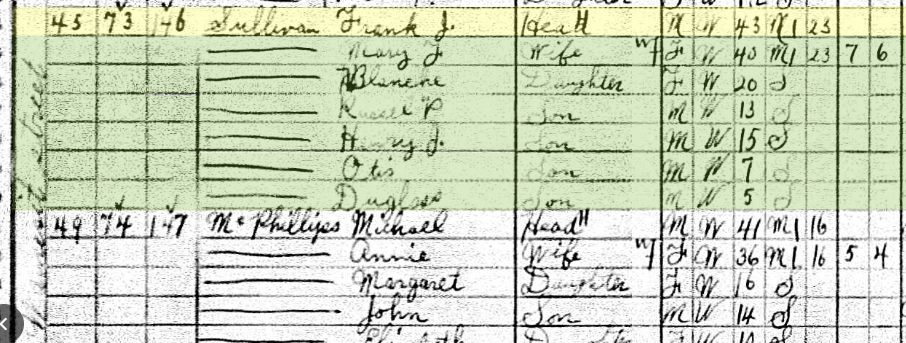 45 73 146 Sullivan Frank J. Head M W 43 M1 23
Mary F Wife F W 40 M1 23 7 6
Blanche Daughter F W 20 S
Russel P Son M W 13 S
Henry J. Son M W 15 S
Otis Son M W 7 S
Duglass Son M W 5 S
49 74 147 McPhillips Michael Head M W 41 M1 16
Annie Wife F W 36 M1 16 5 4
Margaret Daughter F W 16 S
John Son M W 14 S